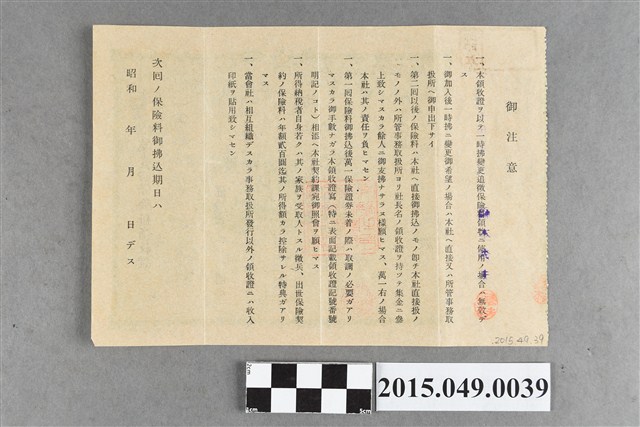 御注意
一、本領收證ヲ以テ一時拂變更追徵保險料領收ニ使用ノ場合ハ無效デ
ス
一、御加入後一時拂ニ變更御希望ノ場合ハ本社ヘ直接又ハ所管事務取
扱所ヘ御申出下サイ
一、第二回以後ノ保險料ハ本社ヘ直接御拂込ノモノ卽チ本社直接扱ノ
モノノ外ハ所管事務取扱所ヨリ社長名ノ領收證ヲ持ツテ集金ニ參
上致シマスカラ餘人ニ御支拂ナサラヌ樣願ヒマス、萬一右ノ場合
本社ハ其ノ責任ヲ負ヒマセン
一、第一回保險料御拂込後萬一保險證券未着ノ際ハ取調ノ必要ガアリ
マスカラ御手數ナガラ本領收證寫(特ニ表面記載領收證記號番號
明記ノコト)相添ヘ本社契約課宛御照會ヲ願ヒマス
一、所得納稅者自身若クハ其ノ家族ヲ受取人トスル徵兵、出世保險契
約ノ保險料ハ年額貳百圓迄其ノ所得額カラ控除サレル特典ガアリ
マス
一、當會社ハ相互組織デスカラ事務取扱所發行以外ノ領收證ニハ收入
印紙ヲ貼用致シマセン
次回ノ保險料御拂込期日ハ
昭和 年 月 日デス
2015.49.39
2015.049.0039
0cm
5cm